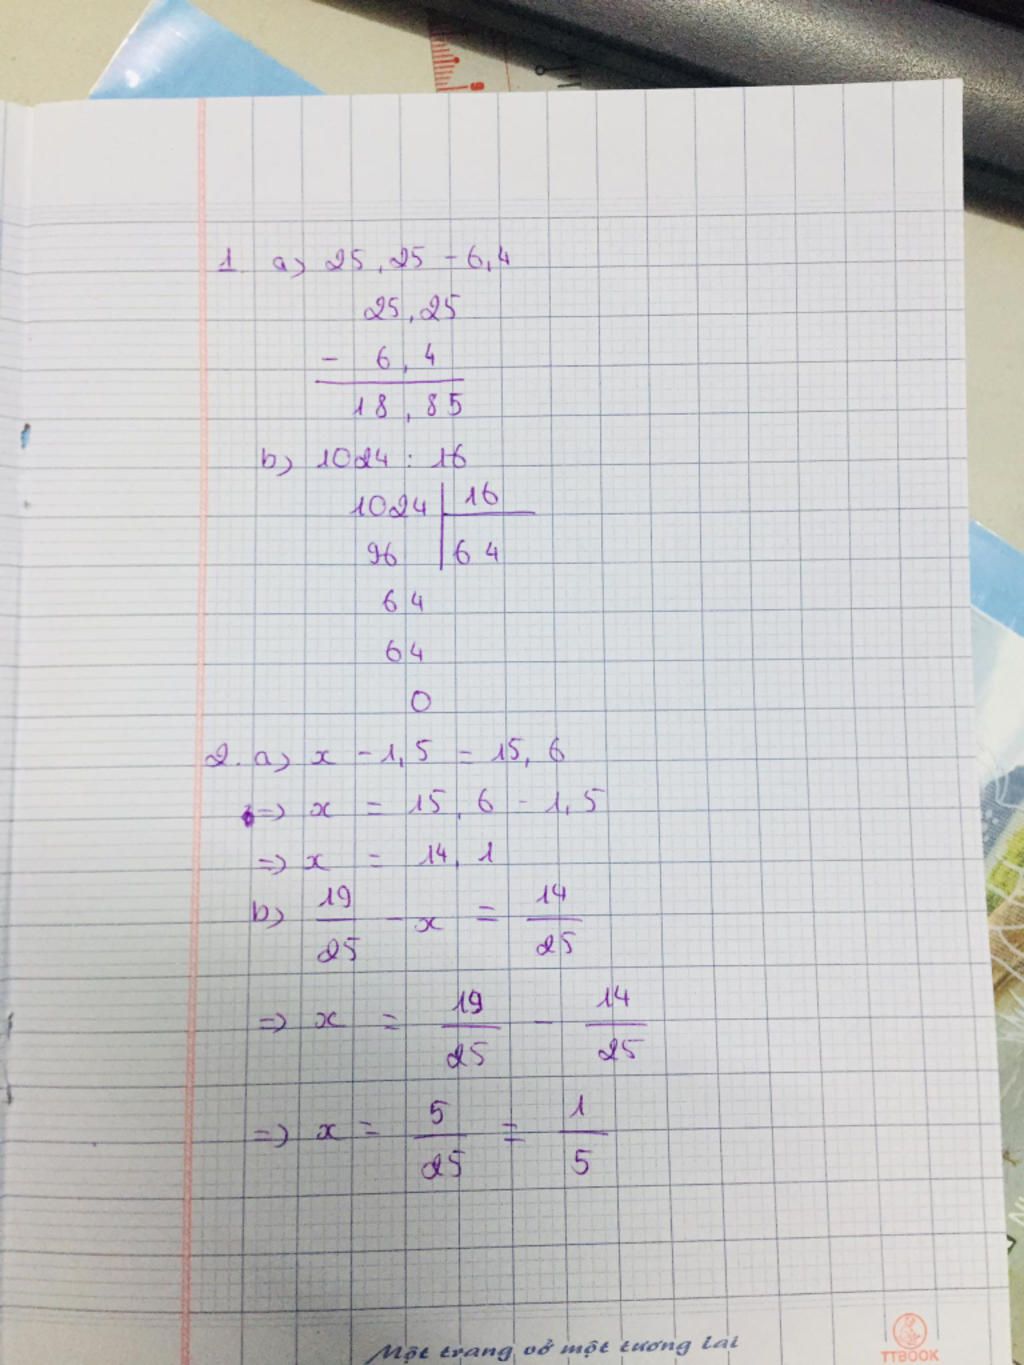 1. a) 25,25 - 6,4
25,25
- 6,4
18,85
b) 1024 : 16
1024 | 16
96 | 64
64
64
0
2. a) x - 1,5 = 15,6
=> x = 15,6 - 1,5
=> x = 14,1
b) 19/25 - x = 14/25
=> x = 19/25 - 14/25
=> x = 5/25 = 1/5
Một trang vở một tương lai
TTBOOK